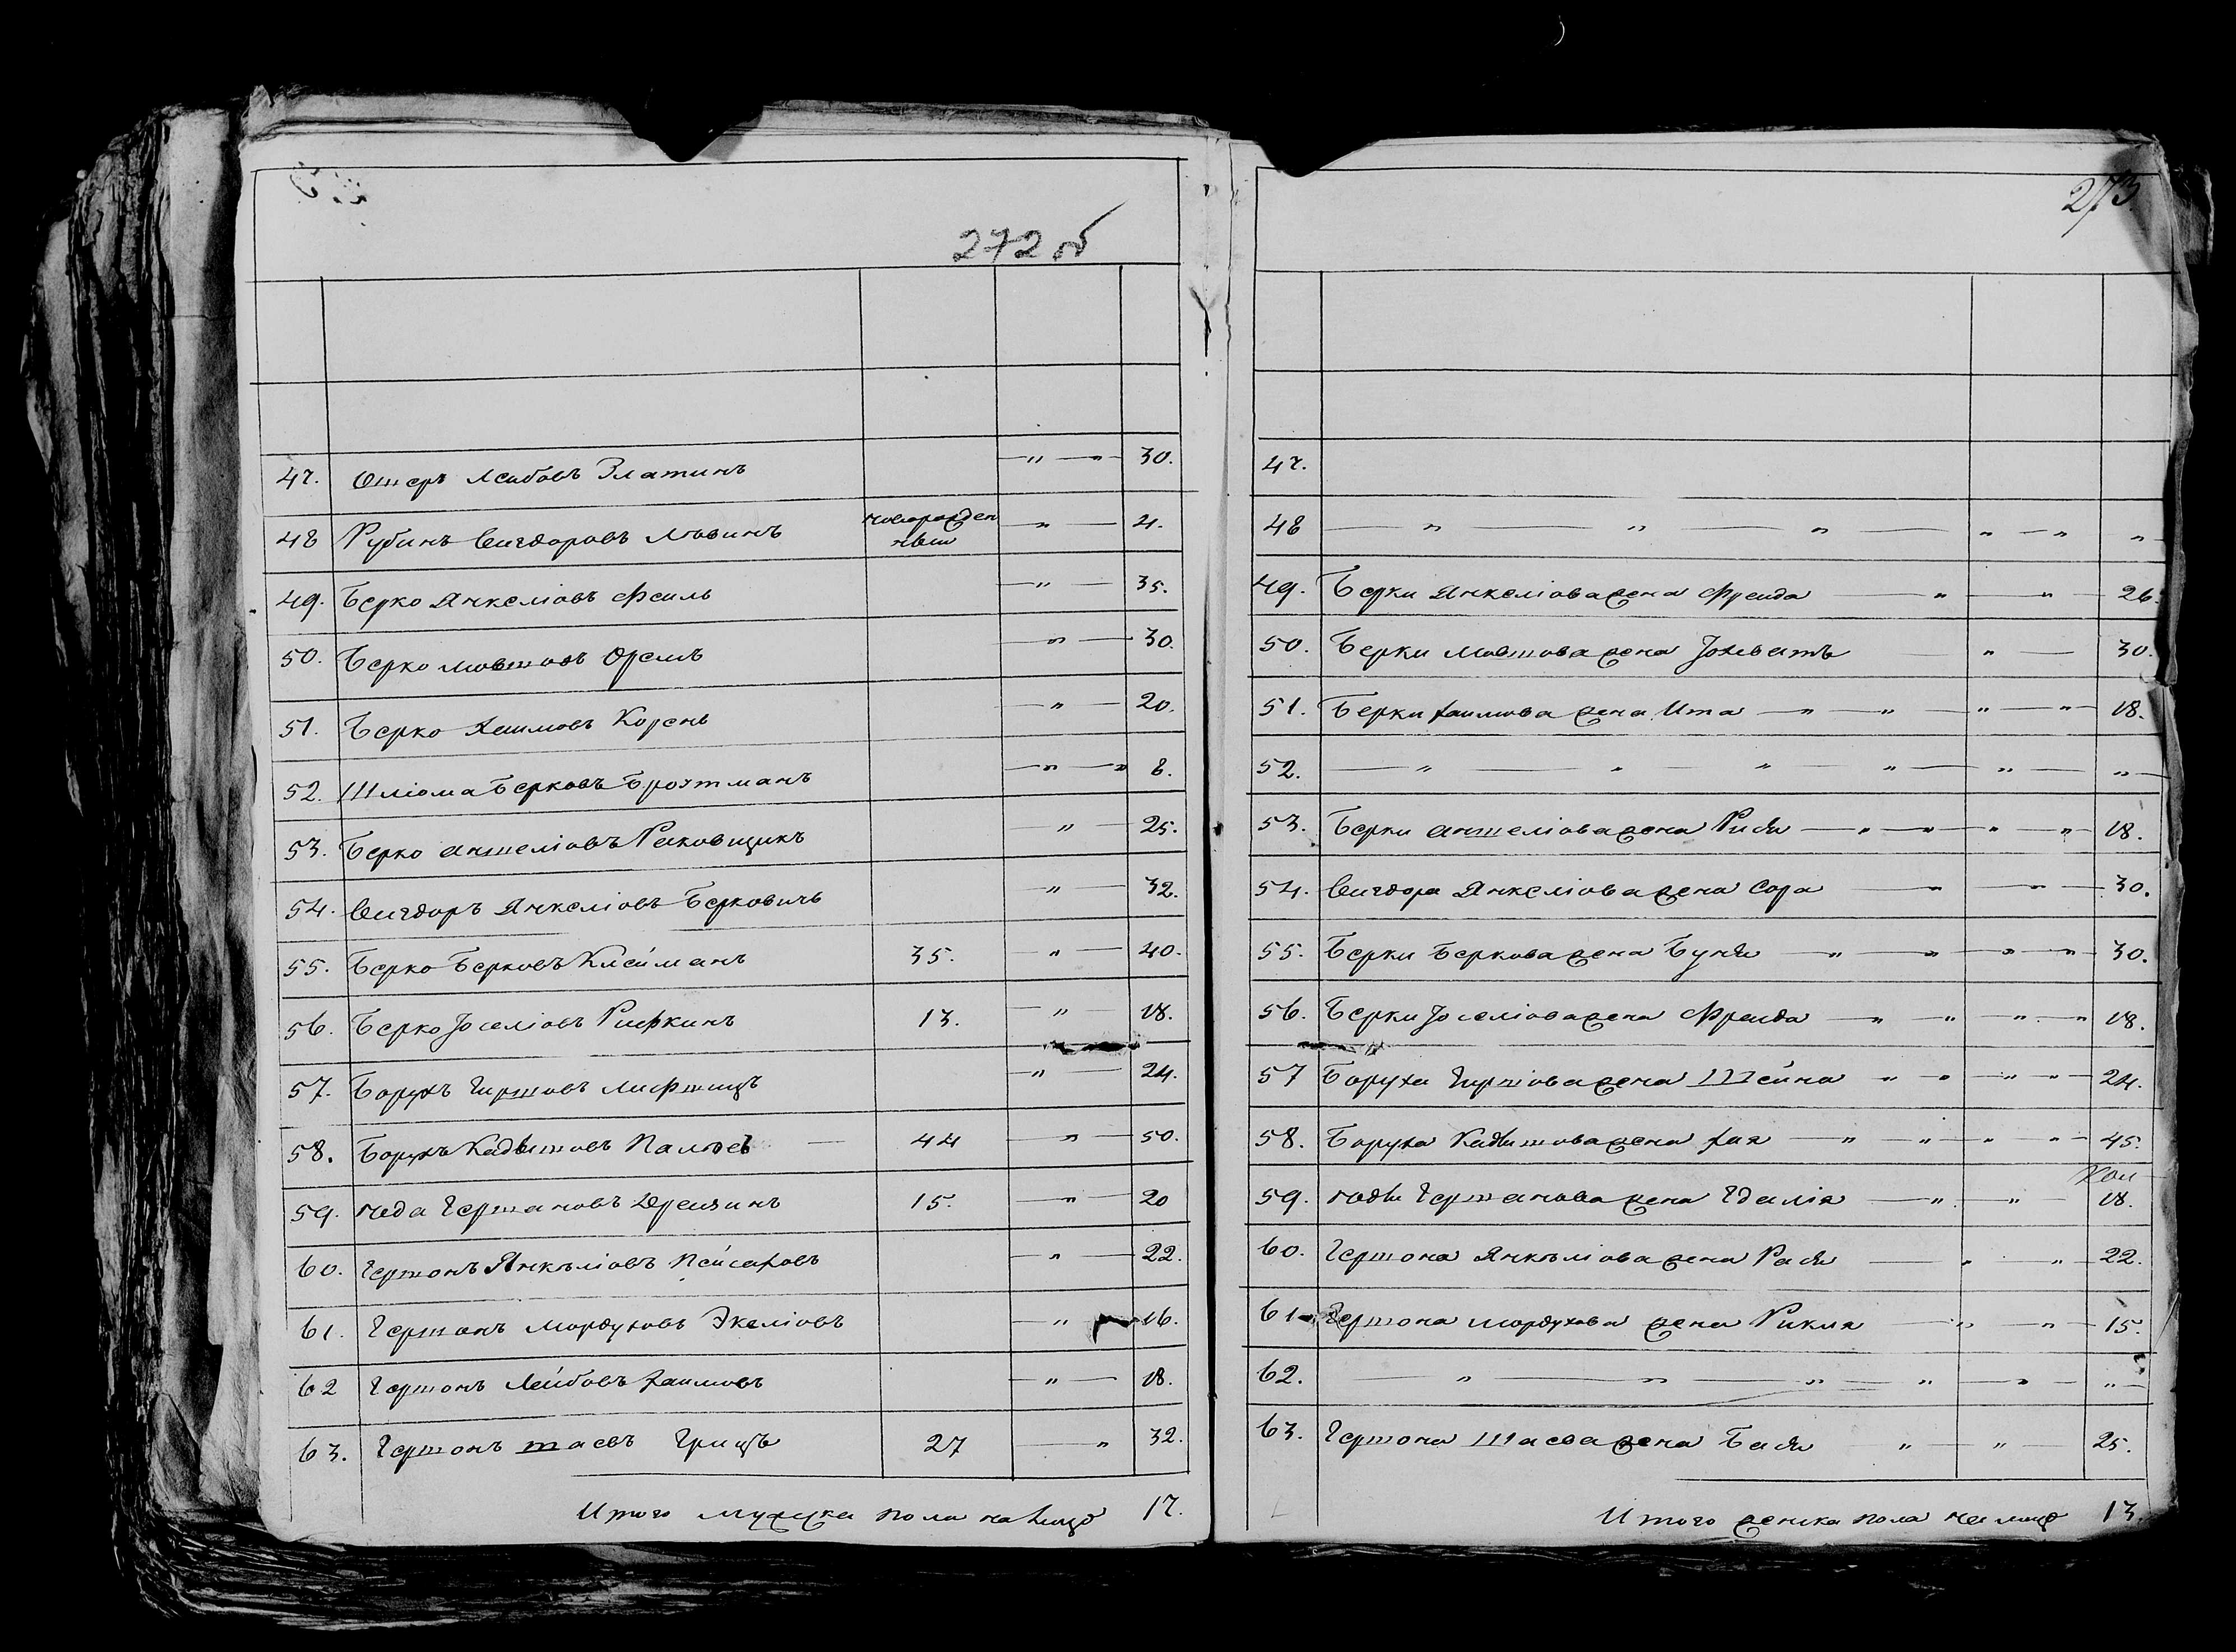 272 об
47. Ошеръ Лейбовъ Златинъ — " — " — 30.
48 Рубинъ Вигдоровъ Левинъ новорожден ный — " — 4.
49. Берко Янкеліовъ Фейль — " — 35.
50. Берко Мовшовъ Орелъ — " — 30.
51. Берко Хаимовъ Корень — " — 20.
52. Шліома Берковъ Бройтманъ — " — " 8.
53. Берко Аншеліовъ Раковщикъ — " — 25.
54. Вигдоръ Янкеліовъ Берковичъ — " — 32.
55. Берко Берковъ Клейманъ 35. — " — 40.
56. Берко Іоселіовъ Рифкинъ 13. — " — 18.
57. Борухъ Гиршовъ Лифшицъ — " — 24.
58. Борухъ Кадышовъ 44 — " — 50.
59. Геда Гершановъ Дрейзинъ 15. — " — 20
60. Гершонъ Янкеліовъ Пейсаховъ — " — 22.
61. Гершонъ Мордуховъ Экеліовъ — " — 16.
62 Гершонъ Лейбовъ Хаимовъ — " — 18.
63. Гершонъ Шаевъ Грицъ 27 — " 32.
Итого мужска пола на лицо 17.
273
47.
48 — " — " — " — " — " "
49. Берки Янкеліова жена Фрейда — " — " — 26.
50. Берки Мовшова жена — " — 30.
51. Берки Хаимова жена Ита — " — " — " — " — 18.
52. — " — " — " — " — " — "
53. Берки Аншеліова жена Рися — " — " — " — " — 18.
54. Вигдора Янкеліова жена Сора " — " — 30.
55. Берки Беркова жена Буня — " — " — " — " — 30.
56. Берки Іоселіова жена Фрейда — " — " — " — " 18.
57 Боруха Гиршова жена Шейна " — " — " — " — 24.
58. Боруха Кадышова жена Хая — " — " — " — " — 45.
59. Геды Гершанова жена — " — " — 18.
60. Гершона Янкеліова жена Рася — " — " — 22.
61 Гершона Мордухова жена Рикля — " — " — 15.
62. " — " — " — " — " — "
63. Гершона Шаева жена Бася " — " — 25.
Итого женска пола на лицо 13.